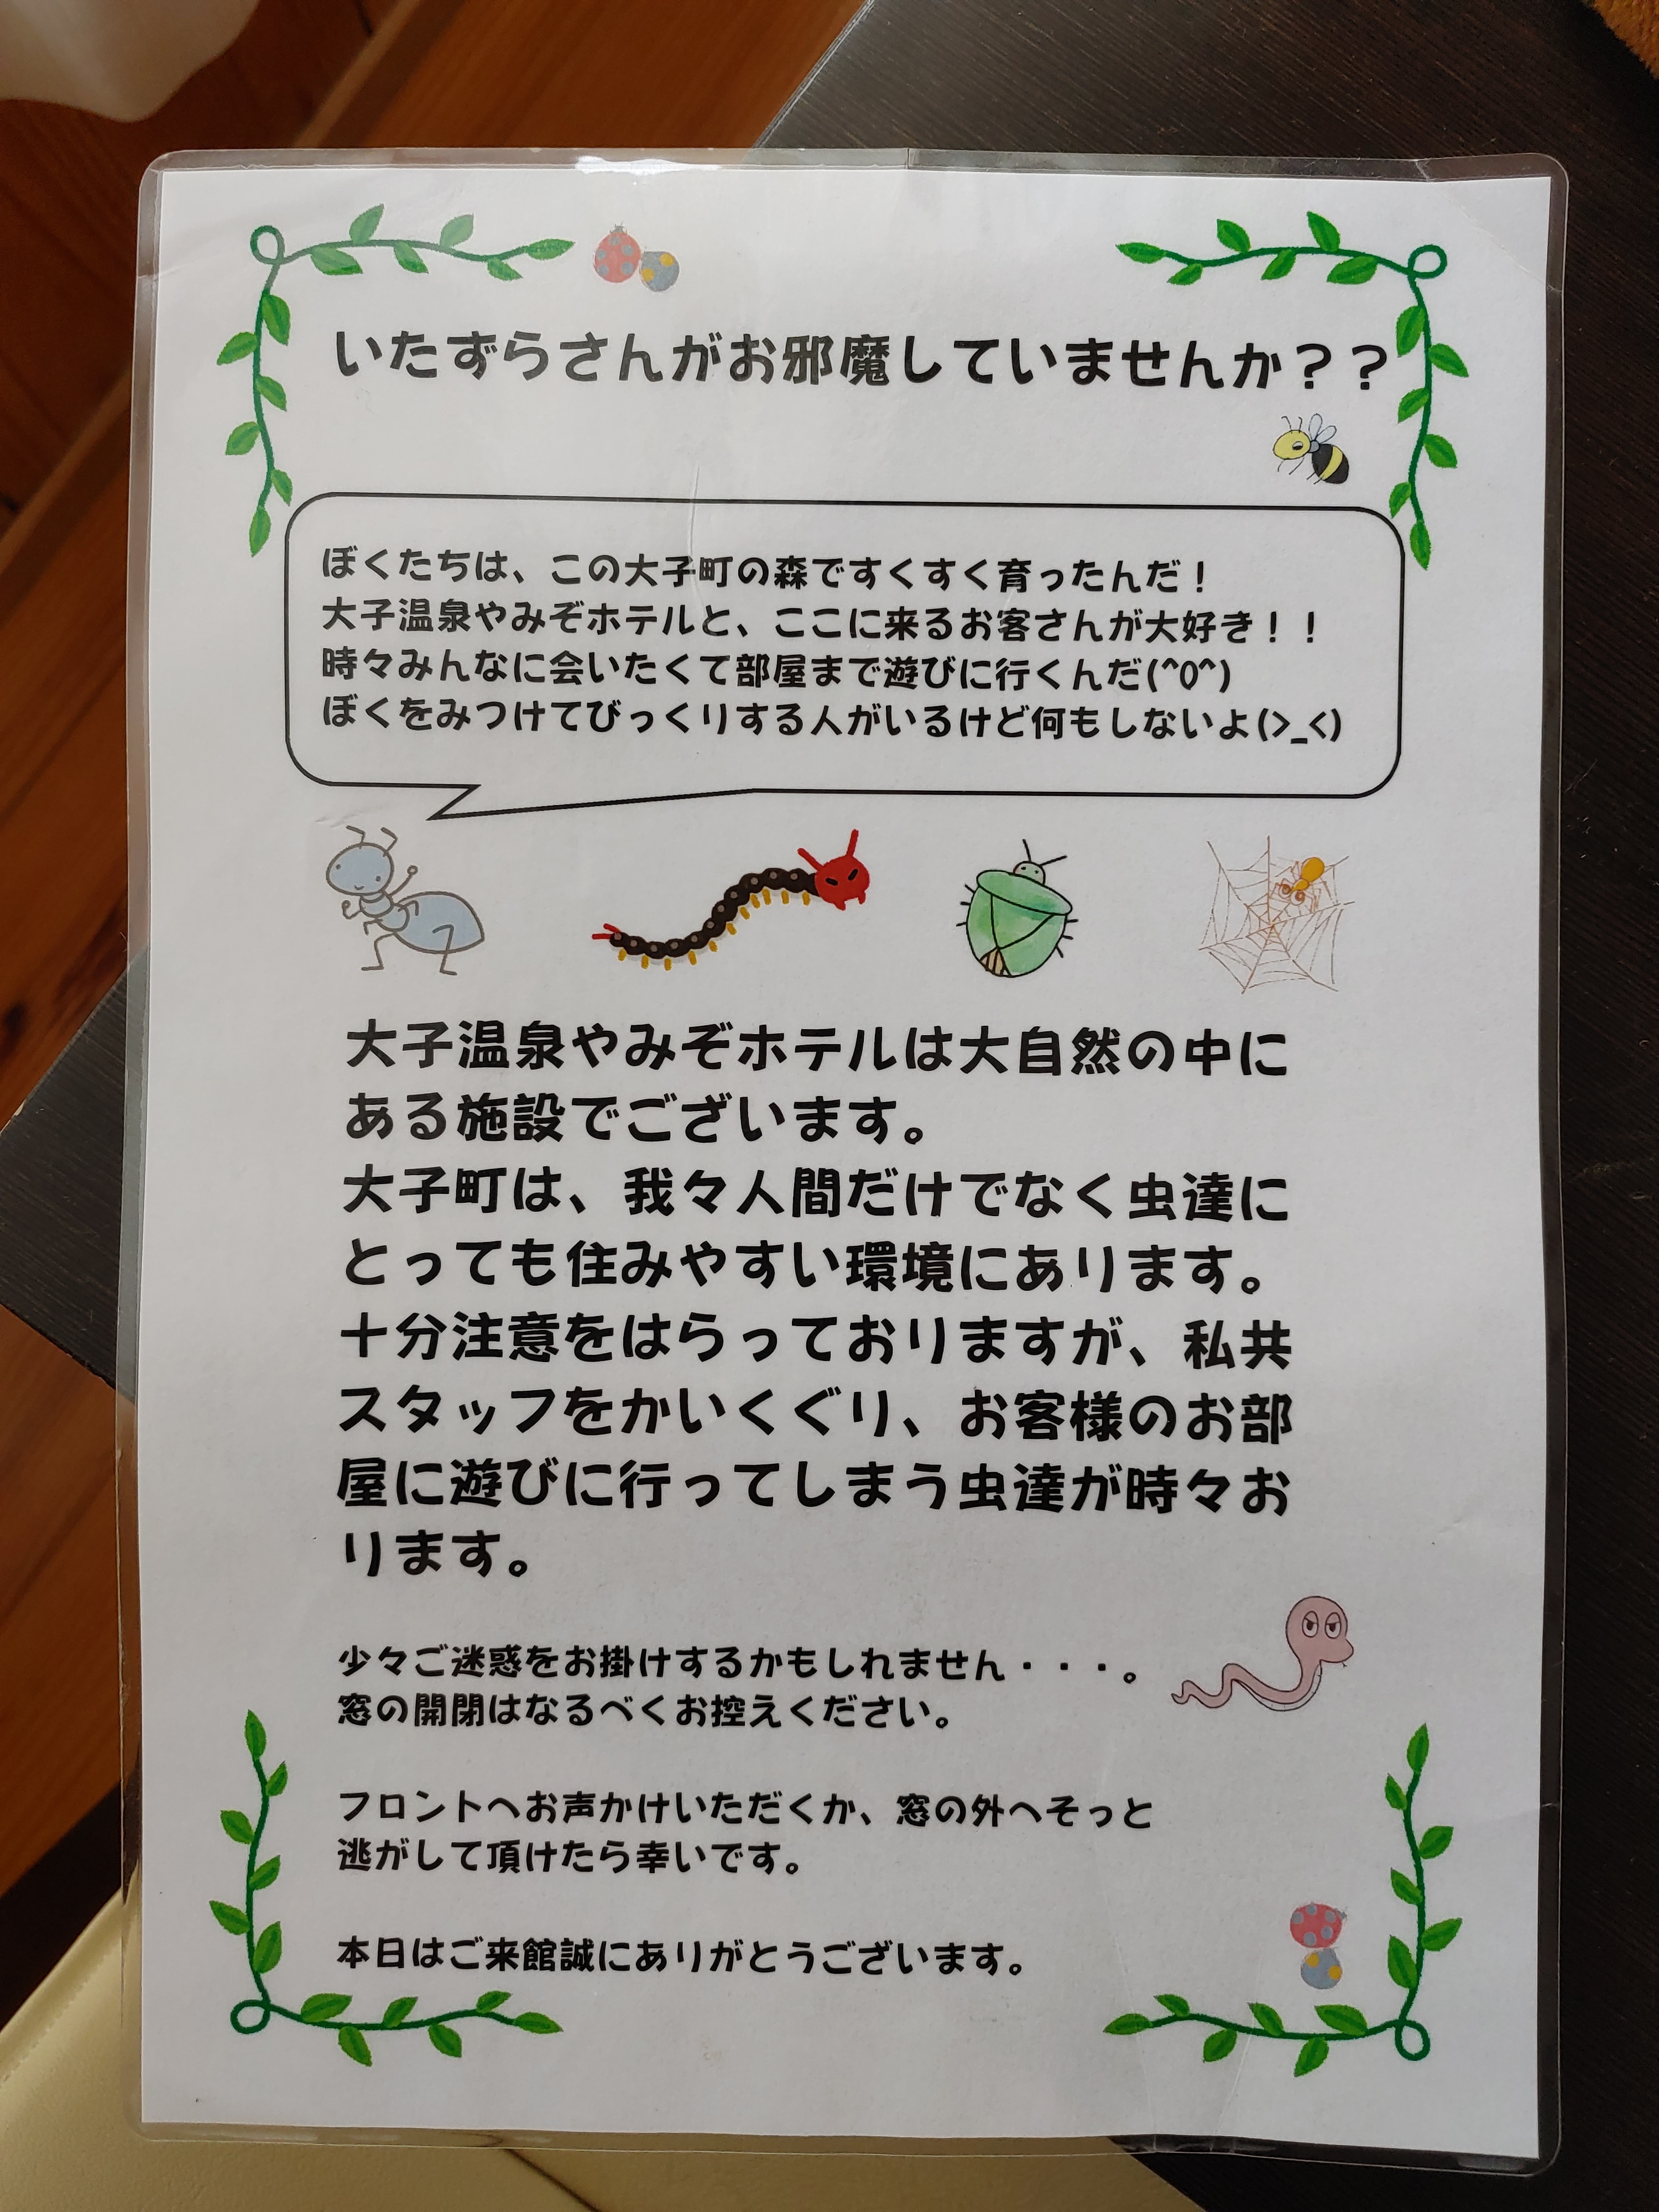 いたずらさんがお邪魔していませんか？？
ぼくたちは、この大子町の森ですくすく育ったんだ！
大子温泉やみぞホテルと、ここに来るお客さんが大好き！！
時々みんなに会いたくて部屋まで遊びに行くんだ(^O^)
ぼくをみつけてびっくりする人がいるけど何もしないよ(>_<)
大子温泉やみぞホテルは大自然の中に
ある施設でございます。
大子町は、我々人間だけでなく虫達に
とっても住みやすい環境にあります。
十分注意をはらっておりますが、私共
スタッフをかいくぐり、お客様のお部
屋に遊びに行ってしまう虫達が時々お
ります。
少々ご迷惑をお掛けするかもしれません・・・。
窓の開閉はなるべくお控えください。
フロントへお声かけいただくか、窓の外へそっと
逃がして頂けたら幸いです。
本日はご来館誠にありがとうございます。